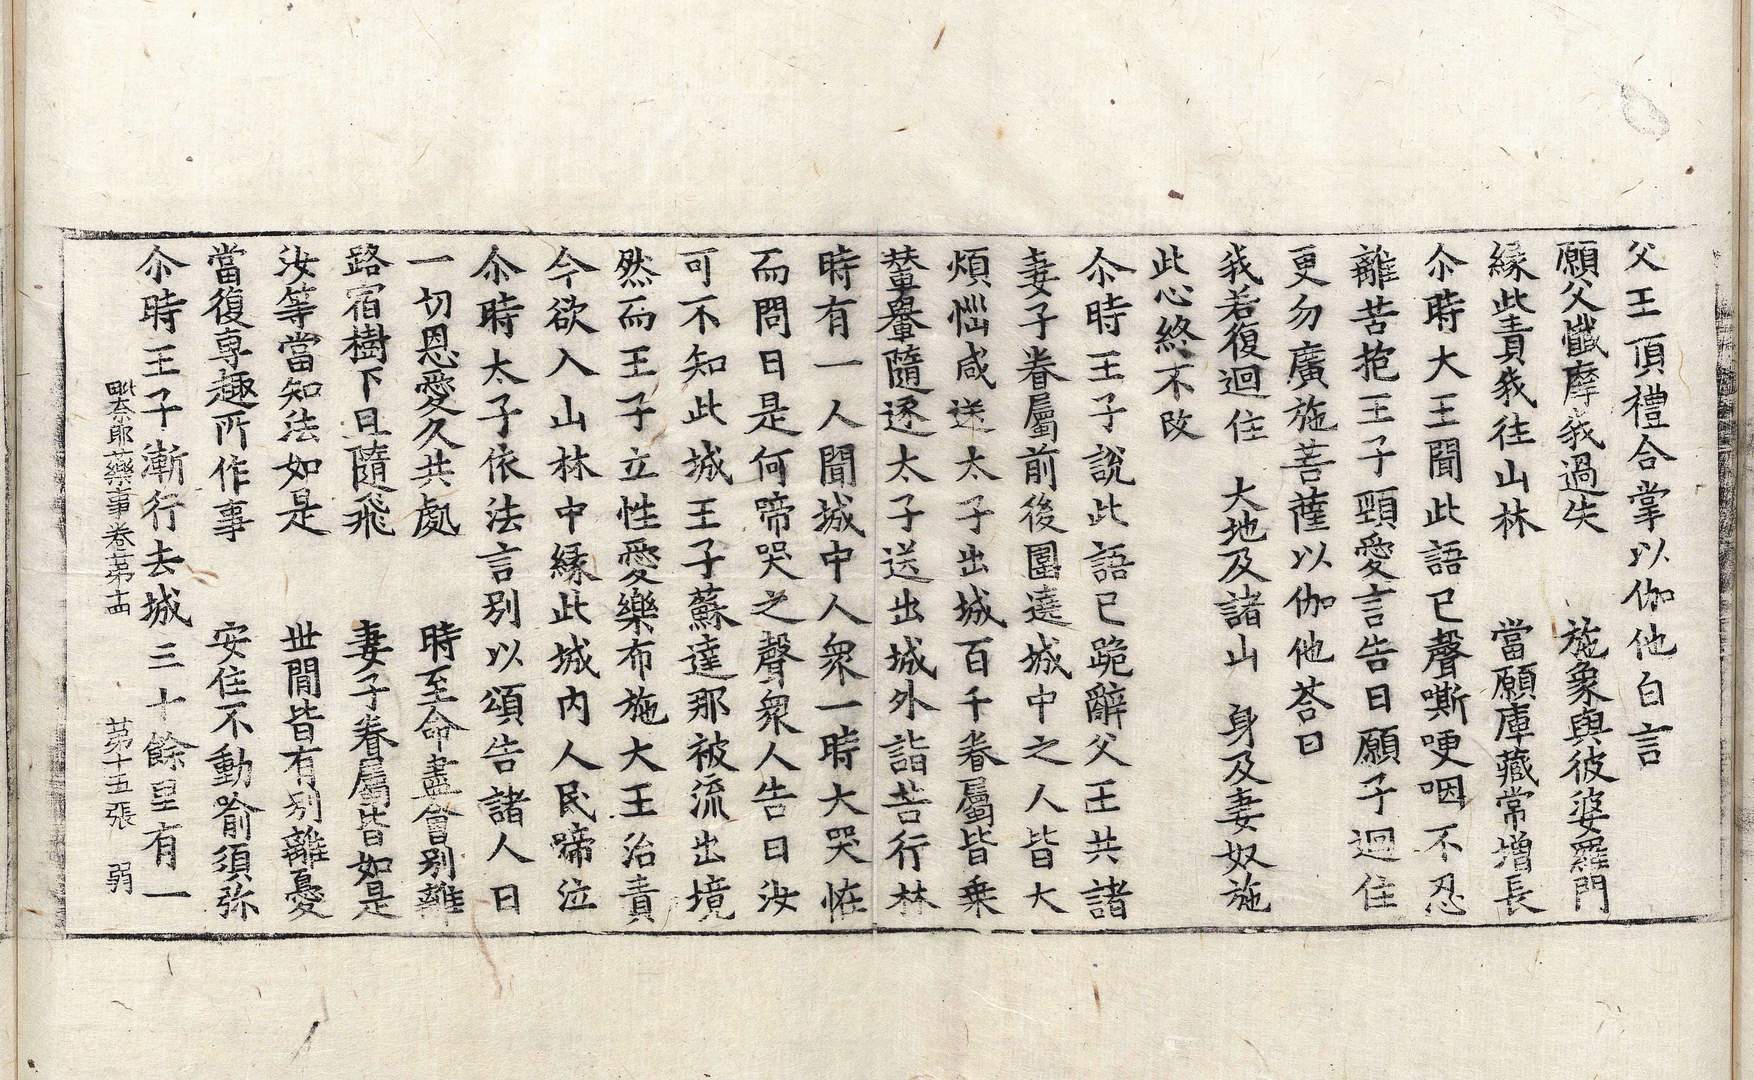 父王頂禮合掌以伽他白言
願父懺摩我過失　施象與彼婆羅門
緣此責我往山林　當願庫藏常增長
尒時大王聞此語已聲嘶哽咽不忍
離苦抱王子頸愛言告曰願子迴住
更勿廣施菩薩以伽他荅曰
我若復迴住　大地及諸山　身及妻奴施
此心終不改
尒時王子說此語已跪辭父王共諸
妻子眷屬前後圍遶城中之人皆大
煩惱咸送太子出城百千眷屬皆乗
輦轝隨逐太子送出城外詣苦行林
時有一人聞城中人衆一時大哭恠
而問曰是何啼哭之聲衆人告曰汝
可不知此城王子蘇達那被流出境
然而王子立性愛樂布施大王治責
今欲入山林中緣此城內人民啼泣
尒時太子依法言別以頌告諸人曰
一切恩愛久共處　時至命盡會別離
路宿樹下且隨飛　妻子眷屬皆如是
汝等當知法如是　世閒皆有別離憂
當復専趣所作事　安住不動喻須弥
尒時王子漸行去城三十餘里有一
毗奈耶藥事卷苐十四　苐十五張　弱